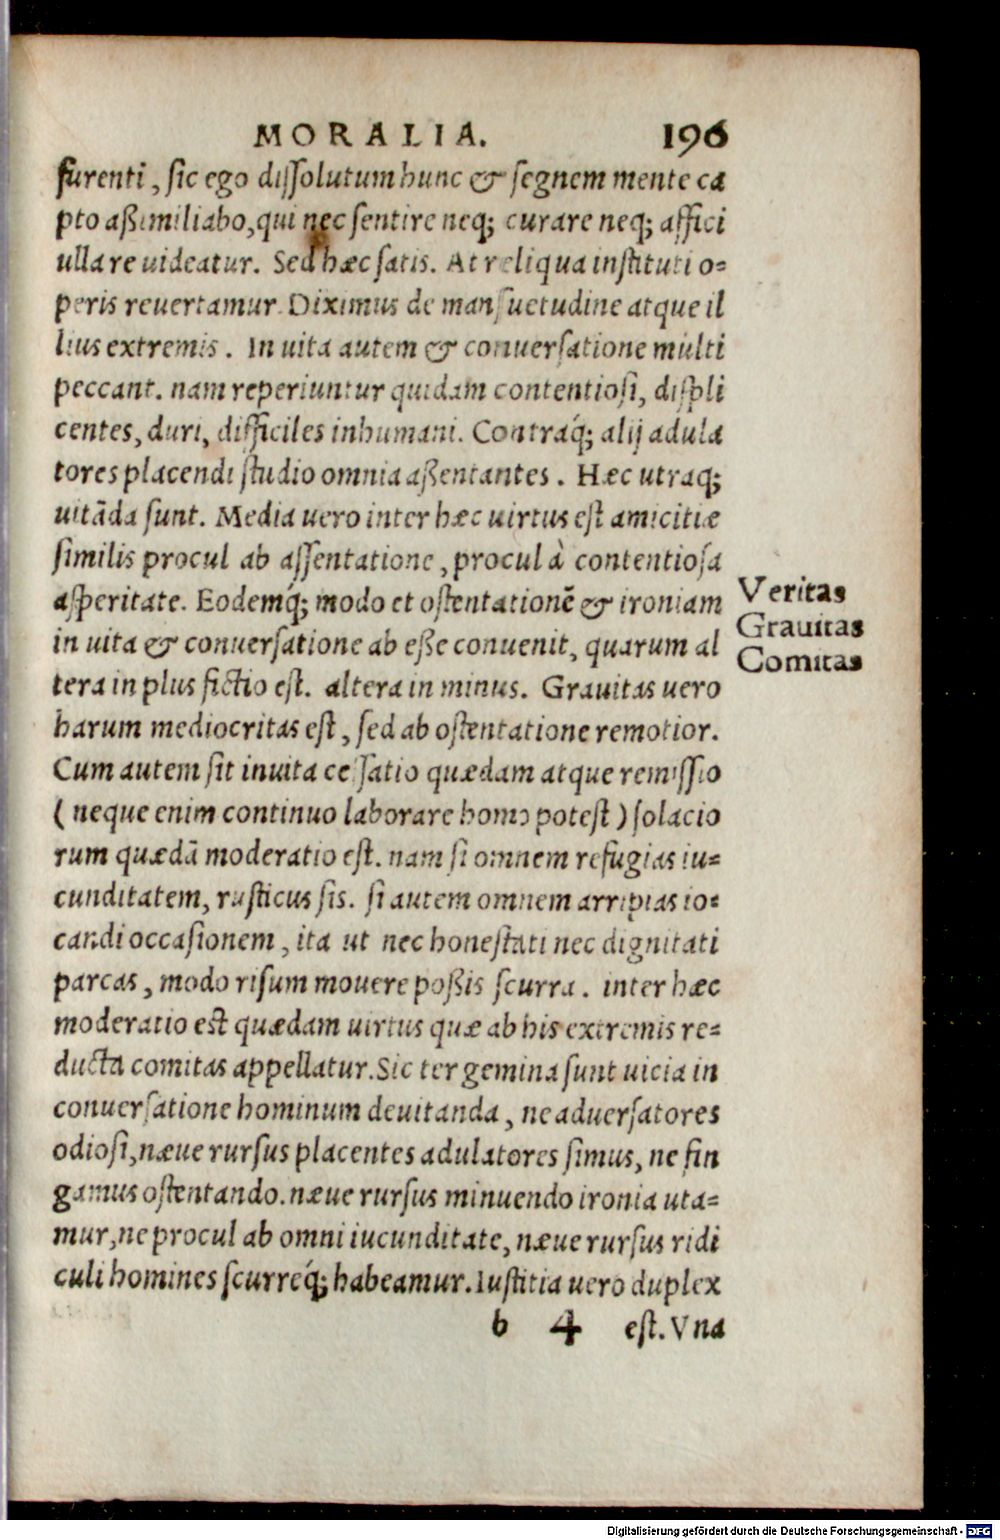 MORALIA. 196
furenti, sic ego dissolutum hunc & segnem mente ca
pto aßimiliabo, qui nec sentire neq; curare neq; affici
ulla re uideatur. Sed hæc satis. At reliqua instituti o=
peris reuertamur. Diximus de mansuetudine atque il
lius extremis. In uita autem & conuersatione multi
peccant. nam reperiuntur quidam contentiosi, displi
centes, duri, difficiles inhumani. Contraq́; alij adula
tores placendi studio omnia aßentantes. Hæc utraq;
uitāda sunt. Media uero inter hæc uirtus est amicitiæ
similis procul ab assentatione, procul à contentiosa
asperitate. Eodemq́; modo et ostentationē & ironiam
in uita & conuersatione ab eße conuenit, quarum al
tera in plus fictio est. altera in minus. Grauitas uero
harum mediocritas est, sed ab ostentatione remotior.
Cum autem sit in uita cessatio quædam atque remissio
(neque enim continuo laborare homo potest) solacio
rum quædā moderatio est. nam si omnem refugias iu=
cunditatem, rusticus sis. si autem omnem arripias io=
candi occasionem, ita ut nec honestati nec dignitati
parcas, modo risum mouere poßis scurra. inter hæc
moderatio est quædam uirtus quæ ab his extremis re=
ducta comitas appellatur. Sic ter gemina sunt uicia in
conuersatione hominum deuitanda, ne aduersatores
odiosi, næue rursus placentes adulatores simus, ne fin
gamus ostentando. næue rursus minuendo ironia uta=
mur, ne procul ab omni iucunditate, næue rursus ridi
culi homines scurreq́; habeamur. Iustitia uero duplex
b 4 est. Vna
Veritas
Grauitas
Comitas
Digitalisierung gefördert durch die Deutsche Forschungsgemeinschaft - DFG